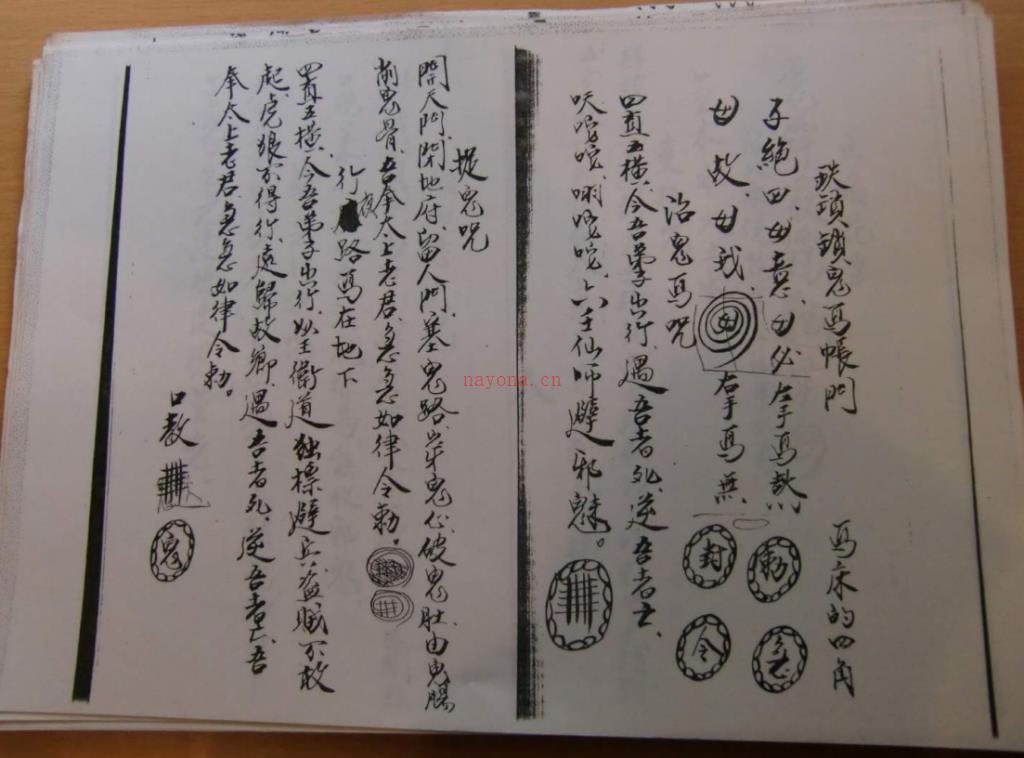 鉄鎖鎖鬼馬帳門 馬床的四角
子絶四母意母必左手馬
母故母我 母 右手馬無
勅 急 封 令
治鬼馬咒
四直五横今吾弟子出行遇吾者死逆吾者亡
六壬仙師避邪魅。
捉鬼咒
開天門閉地府留人門塞鬼路穿鬼心破鬼肚由鬼腸
削鬼骨吾奉太上老君急急如律令勅。
行夜路馬在地下
四直五横今吾弟子出行如王衛道独標避兵盗賊不敢
起虎狼不得行遠歸故鄉遇吾者死逆吾者亡吾
奉太上老君急急如律令勅。
口教 鬼
nayona.cn